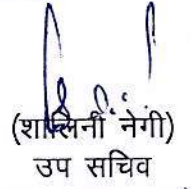 (शालिनी नेगी)
उप सचिव